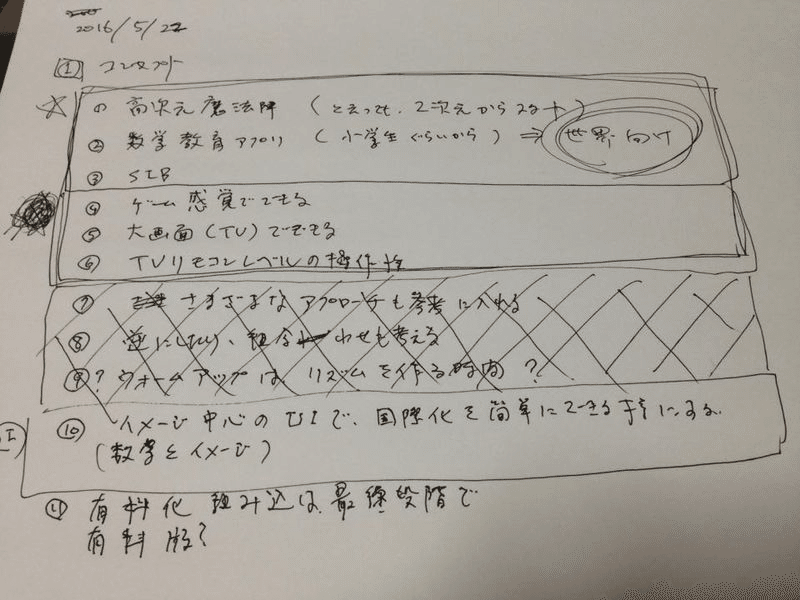 2016/5/22
1 コンセプト
☆ ① 高次元魔法陣 (といっても、2次元からスタート)
② 数学教育アプリ (小学生ぐらいから) ⇒ 世界向け
③
④ ゲーム感覚でできる
⑤ 大画面(TV)でできる
⑥ TVリモコンレベルの操作性
⑦ さまざまなアプローチも参考に入れる
⑧ 逆にしたり、組合わせも考える
⑨? ウォームアップは、リズムを作る時間?
⑩ イメージ中心のUIで、国際化を簡単にできる様にする。
(数字とイメージ)
⑪ 有料化組み込は、最終段階で
有料版?